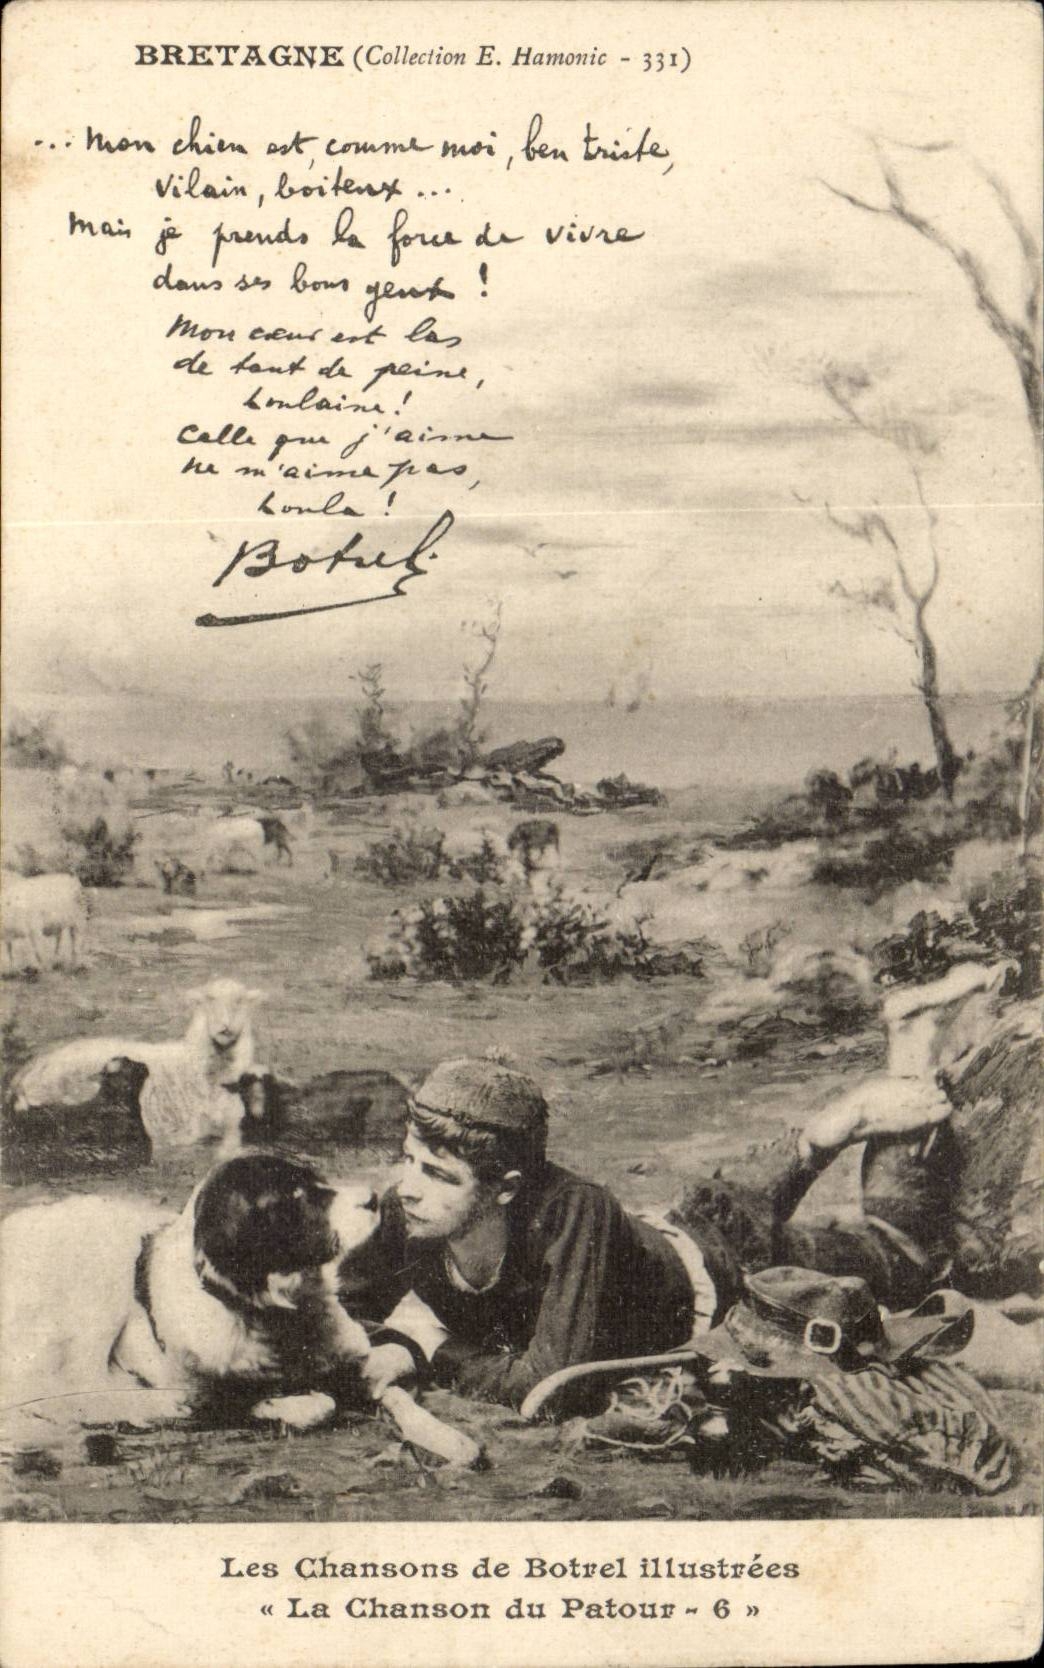 BRETAGNE (Collection E. Hamonic - 331)
... Mon chien est, comme moi, ben triste,
vilain, boiteux ...
Mais je prends la force de vivre
dans ses bons yeux !
Mon cœur est las
de tant de peine,
Loulaine !
Celle que j'aime
ne m'aime pas,
Loula !
Botrel
Les Chansons de Botrel illustrées
« La Chanson du Patour - 6 »